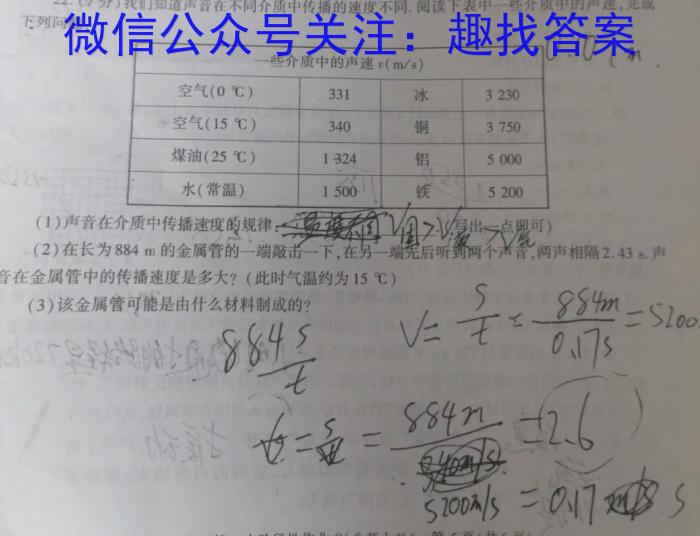 22.(9分)我们知道声音在不同介质中传播的速度不同.阅读下表中一些介质中的声速,完成
下列问
微信公众号关注：趣找答案
一些介质中的声速 v(m/s)
空气(0 ℃) 331 冰 3 230
空气(15 ℃) 340 铜 3 750
煤油(25 ℃) 1 324 铝 5 000
水(常温) 1 500 铁 5 200
(1)声音在介质中传播速度的规律: V固>V液>V气 写出一点即可)
(2)在长为884 m的金属管的一端敲击一下,在另一端先后听到两个声音,两声相隔2.43 s.声
音在金属管中的传播速度是多大?(此时气温约为15 ℃)
(3)该金属管可能是由什么材料制成的?
V= s/t = 884m/0.17s =5200
884 s/t
= 884m =2.6
340m/s
5200m/s =0.17 s